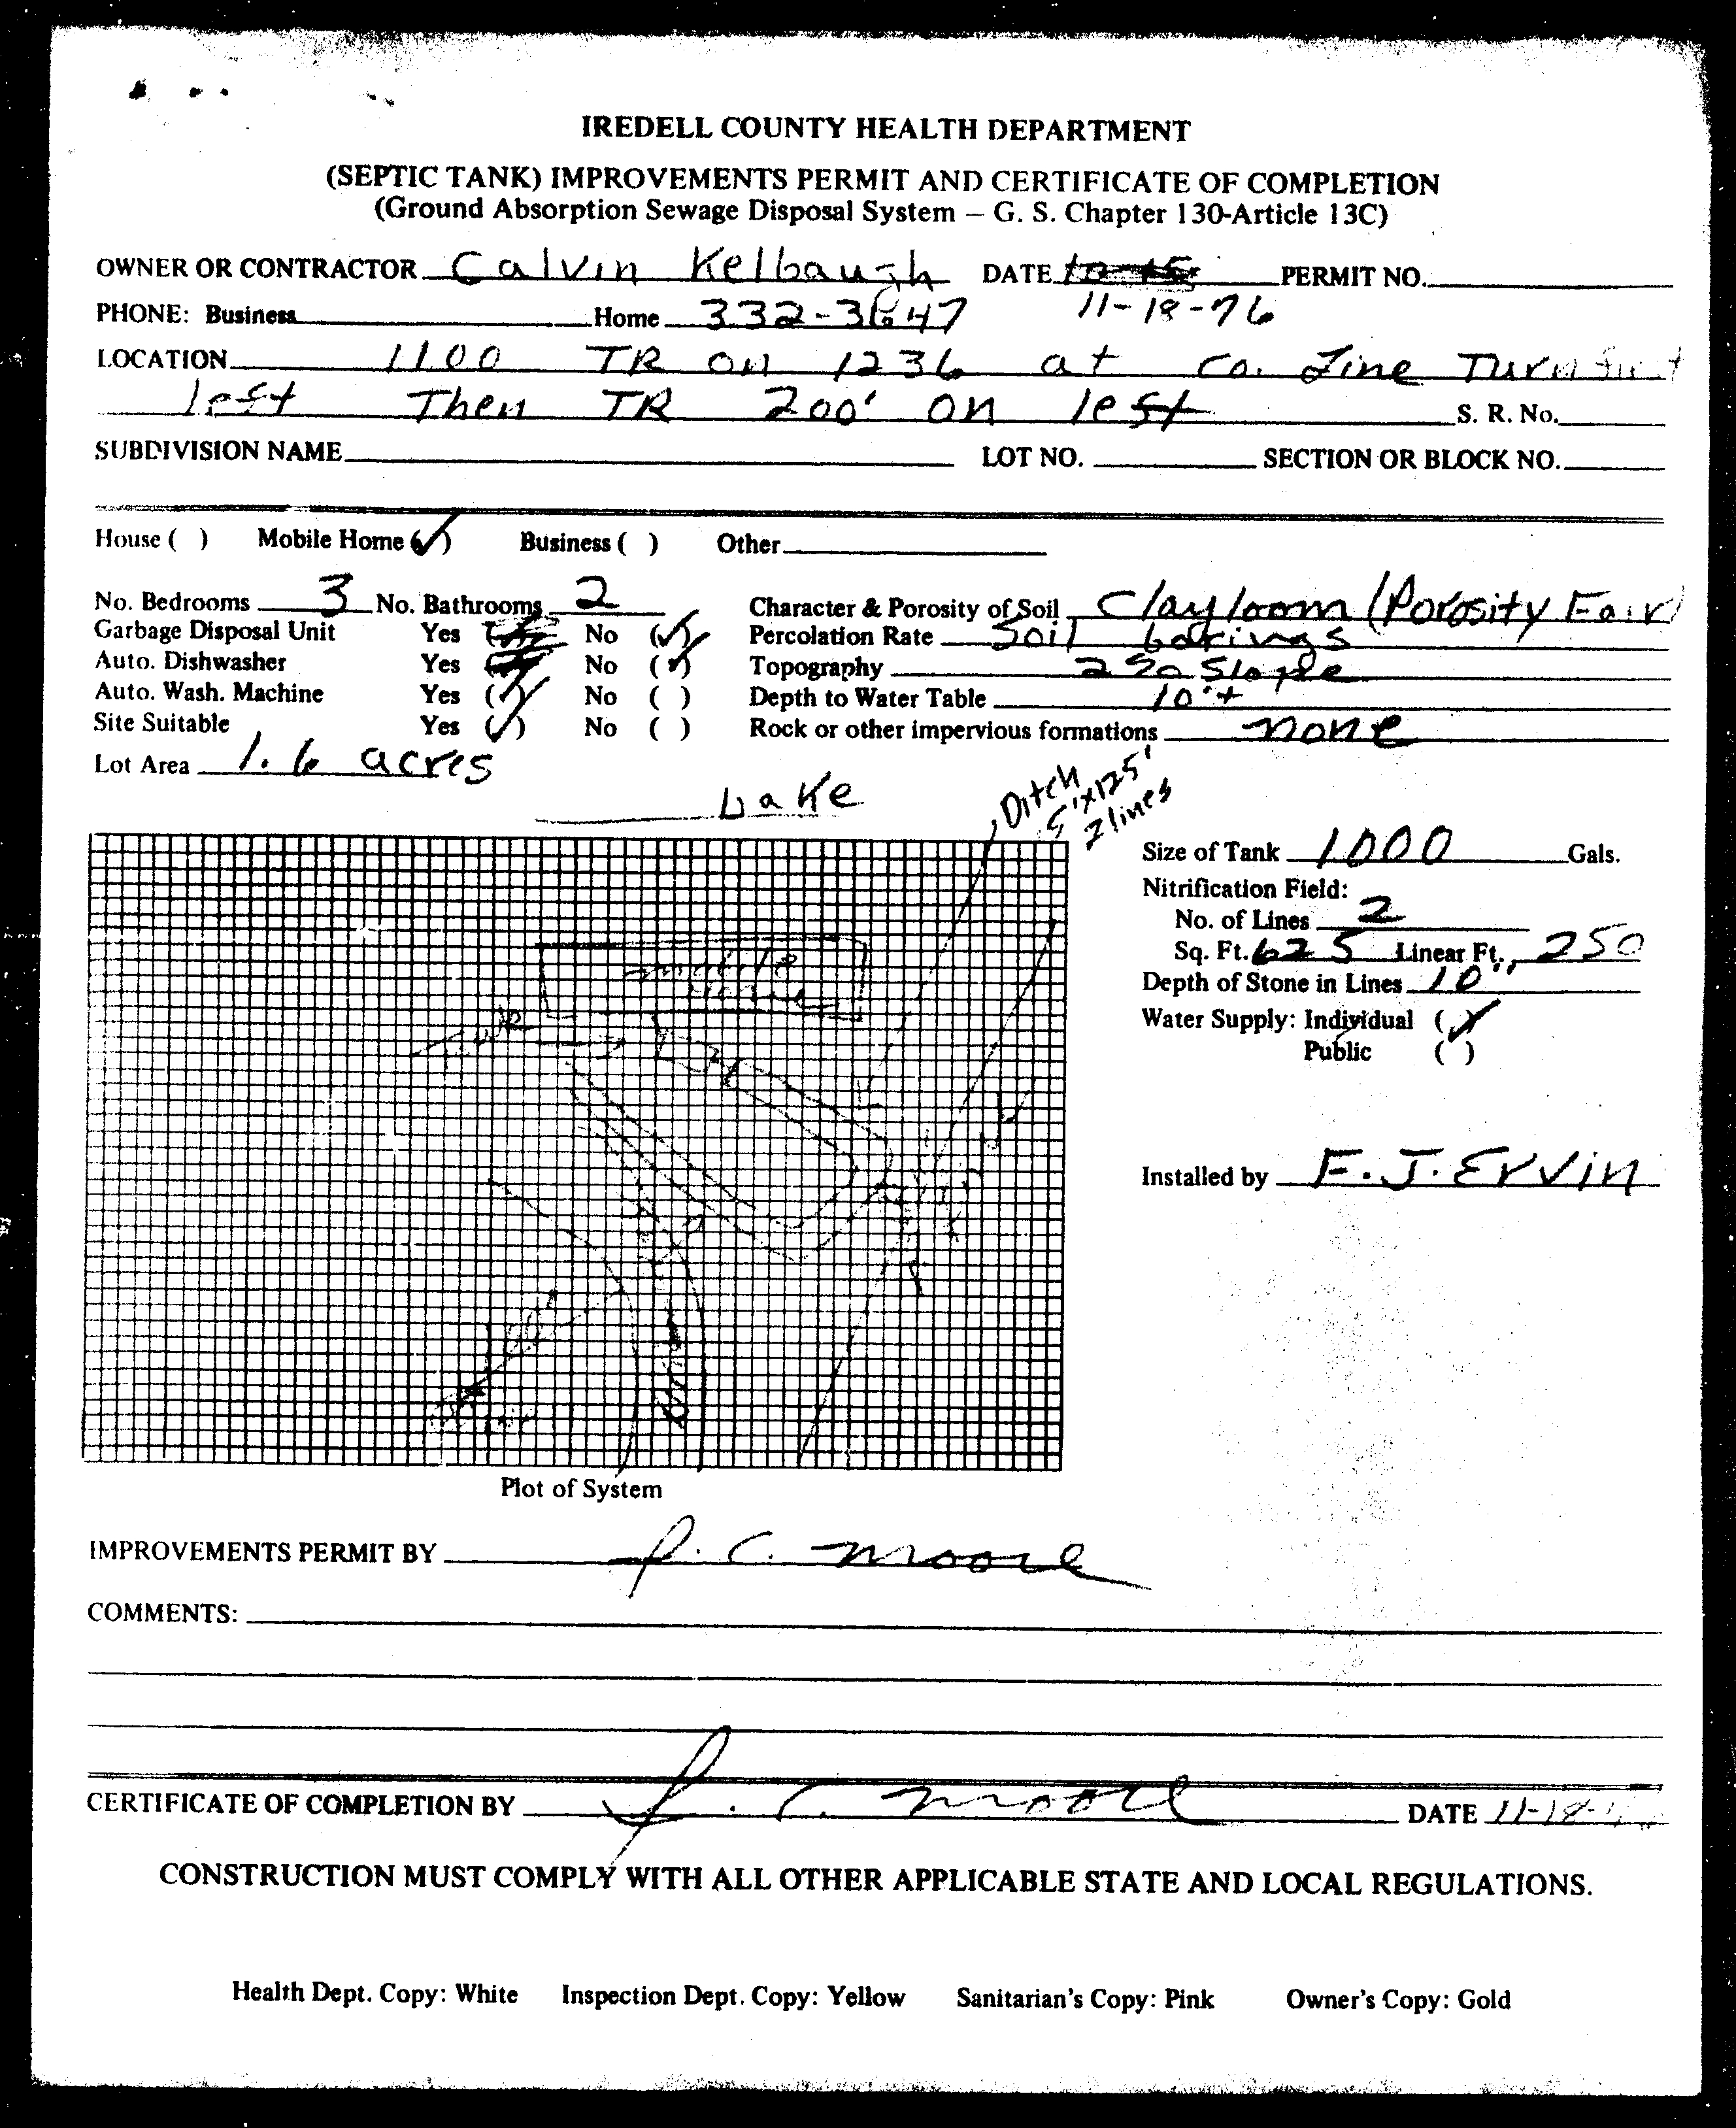 IREDELL COUNTY HEALTH DEPARTMENT
(SEPTIC TANK) IMPROVEMENTS PERMIT AND CERTIFICATE OF COMPLETION
(Ground Absorption Sewage Disposal System – G. S. Chapter 130-Article 13C)
OWNER OR CONTRACTOR Calvin Kelbaugh DATE PERMIT NO.
PHONE: Business Home 332-3647 11-18-76
LOCATION 1100 TR on 1236 at Co. Line Turn first
left Then TR 200' on left S. R. No.
SUBDIVISION NAME LOT NO. SECTION OR BLOCK NO.
House ( ) Mobile Home (✓) Business ( ) Other
No. Bedrooms 3 No. Bathrooms 2 Character & Porosity of Soil Clayloom (Porosity Fair)
Garbage Disposal Unit Yes No (✓) Percolation Rate Soil borings
Auto. Dishwasher Yes No (✓) Topography 2% Slope
Auto. Wash. Machine Yes (✓) No ( ) Depth to Water Table 10'+
Site Suitable Yes (✓) No ( ) Rock or other impervious formations none
Lot Area 1.6 acres
Lake
Ditch
5'x125'
2 lines
mobile
home
Tank
Size of Tank 1000 Gals.
Nitrification Field:
No. of Lines 2
Sq. Ft. 625 Linear Ft. 250
Depth of Stone in Lines 10"
Water Supply: Individual (✓)
Public ( )
Installed by F. J. Ervin
Plot of System
IMPROVEMENTS PERMIT BY J. C. Moore
COMMENTS:
CERTIFICATE OF COMPLETION BY J. C. Moore DATE 11-18-
CONSTRUCTION MUST COMPLY WITH ALL OTHER APPLICABLE STATE AND LOCAL REGULATIONS.
Health Dept. Copy: White Inspection Dept. Copy: Yellow Sanitarian's Copy: Pink Owner's Copy: Gold